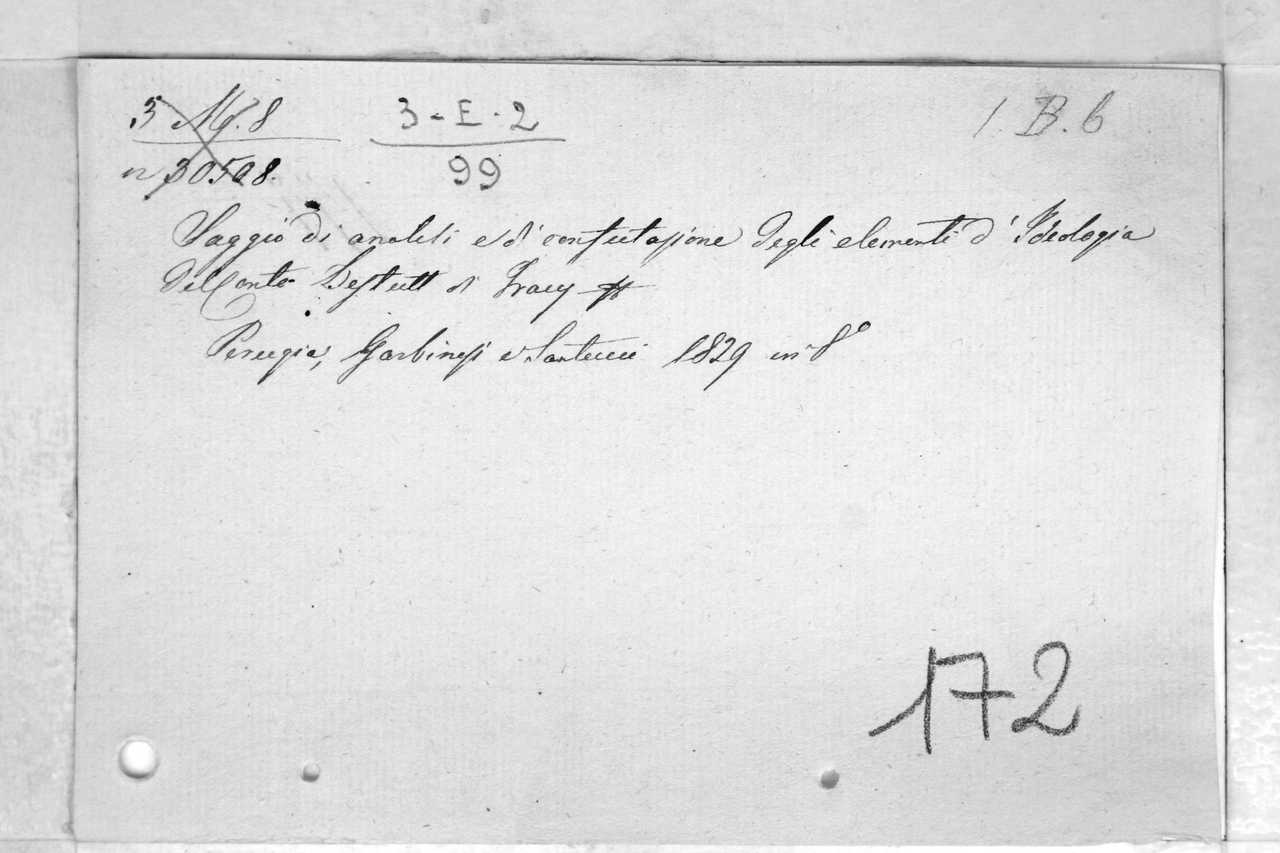 3 M. 8
3-E-2
1. B. 6
n 30508.
99
Saggio di analisi e di confutazione degli elementi d'Ideologia
del Conte Destutt di Tracy
Perugia, Garbinesi e Santucci 1829 in 8°
172